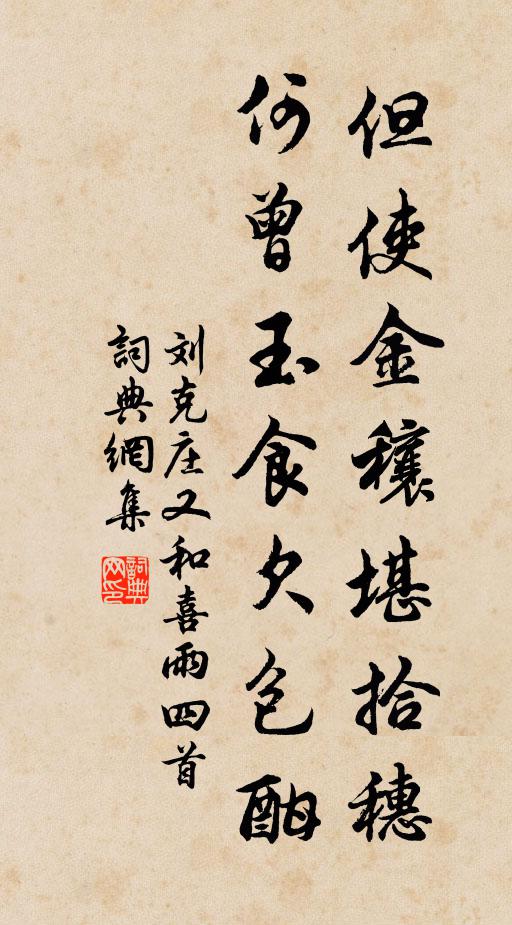 但使金穰堪拾穗
何曾玉食欠包
刘克庄又和喜雨四首
詞典網集
詞典网印